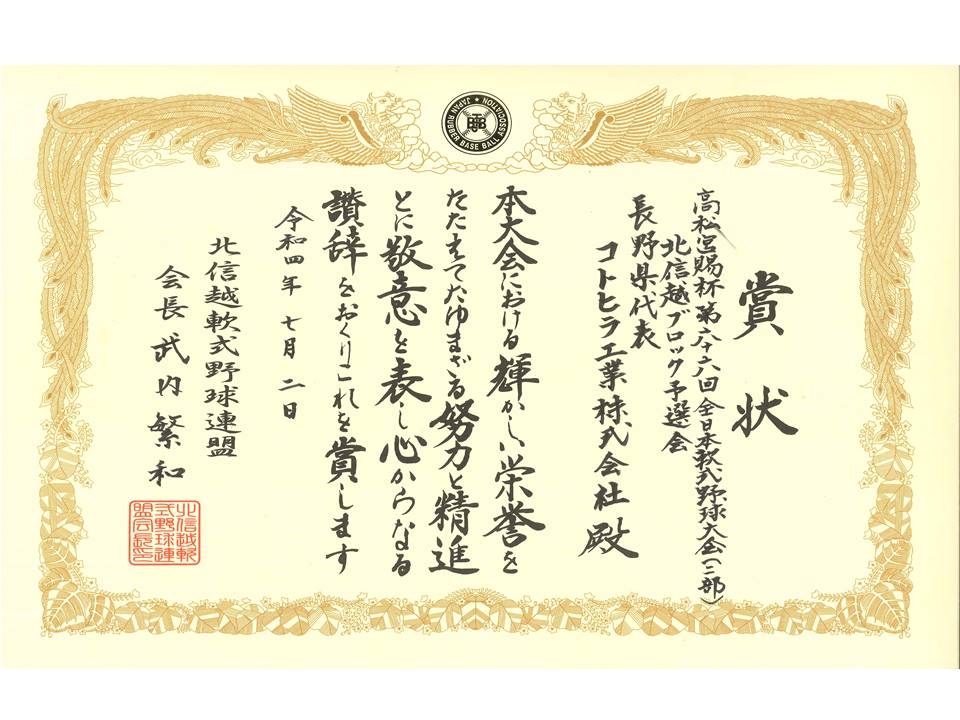 JAPAN RUBBER BASE BALL ASSOCIATION
賞状
高松宮賜杯第六十六回全日本軟式野球大会(二部)
北信越ブロック予選会
長野県代表
コトヒラ工業株式会社殿
本大会における輝かしい栄誉を
たたえてたゆまざる努力と精進
とに敬意を表し心からなる
讃辞をおくりこれを賞します
令和四年七月二日
北信越軟式野球連盟
会長武内繁和
北信越軟
式野球連
盟会長印